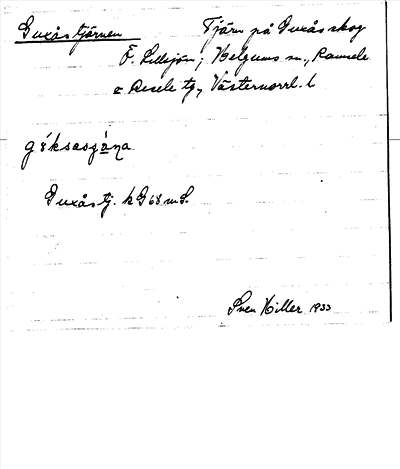 Guxåstjärnen Tjärn på Guxås skog
F. Lillsjön; Helgums sn., Ramsele
o Resele tg, Västernorrl. l.
Guxåstj. kG 68 m S.
Sven Hiller 1933